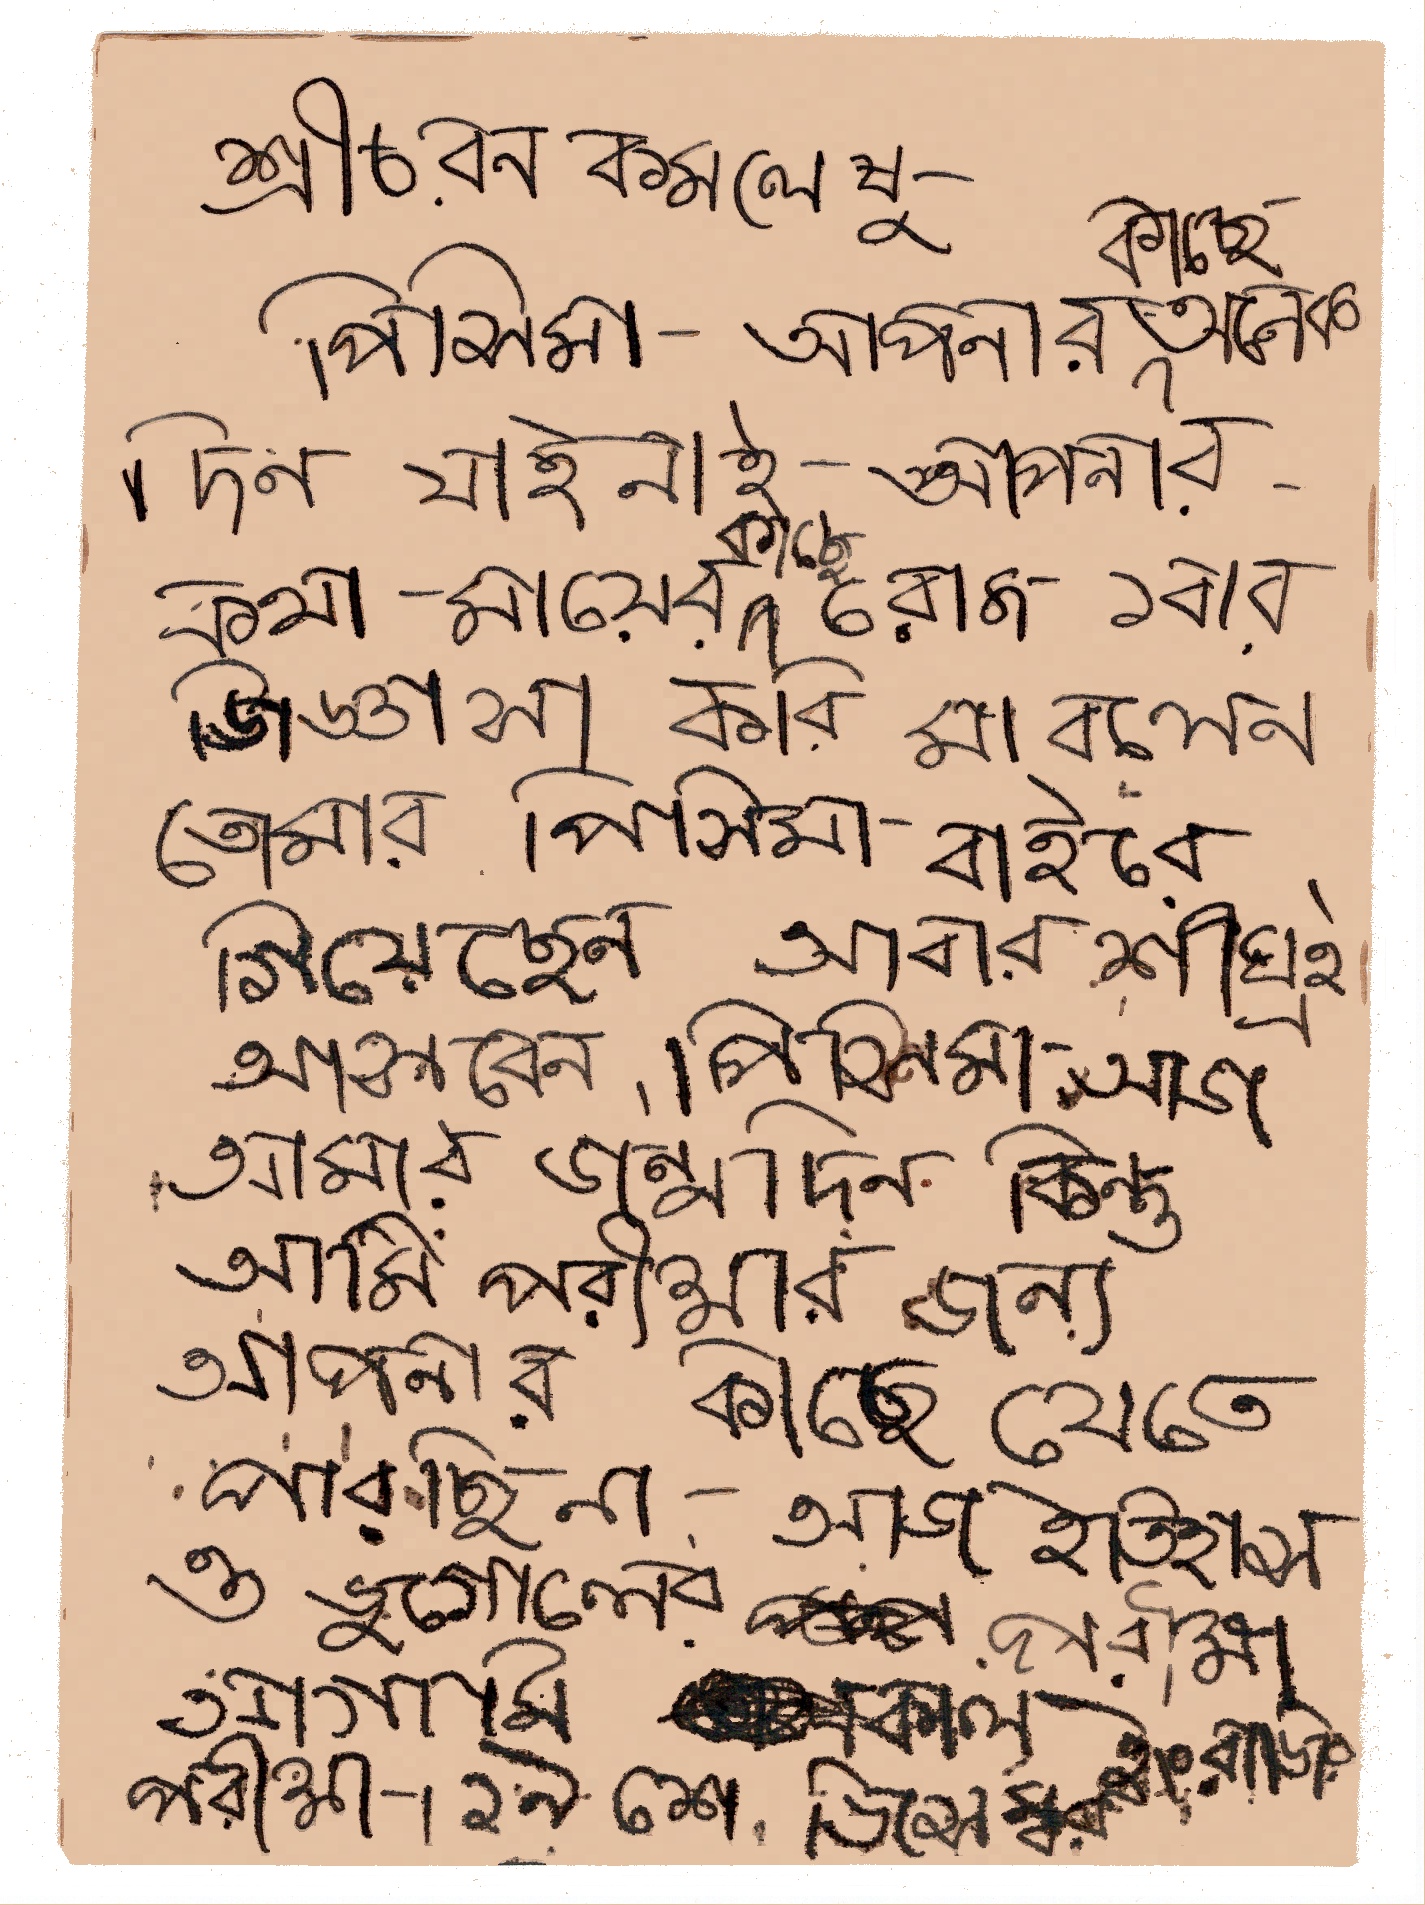 শ্রীচরন কমলেষু-
পিসিমা- আপনার কাছে অনেক
দিন যাই নাই- আপনার-
কথা- মায়ের কাছে রোজ ১বার
জিজ্ঞাসা করি মা বলেন
তোমার পিসিমা- বাইরে
গিয়েছেন আবার শীঘ্রই
আসবেন। পিসিমা- আজ
আমার জন্মদিন কিন্তু
আমি পরীক্ষার জন্য
আপনার কাছে যেতে
পারছি না- আজ ইতিহাস
ও ভুগোলের পরীক্ষা
আগামি কাল ইংরাজির
পরীক্ষা-। ২৯ শে ডিসেম্বর